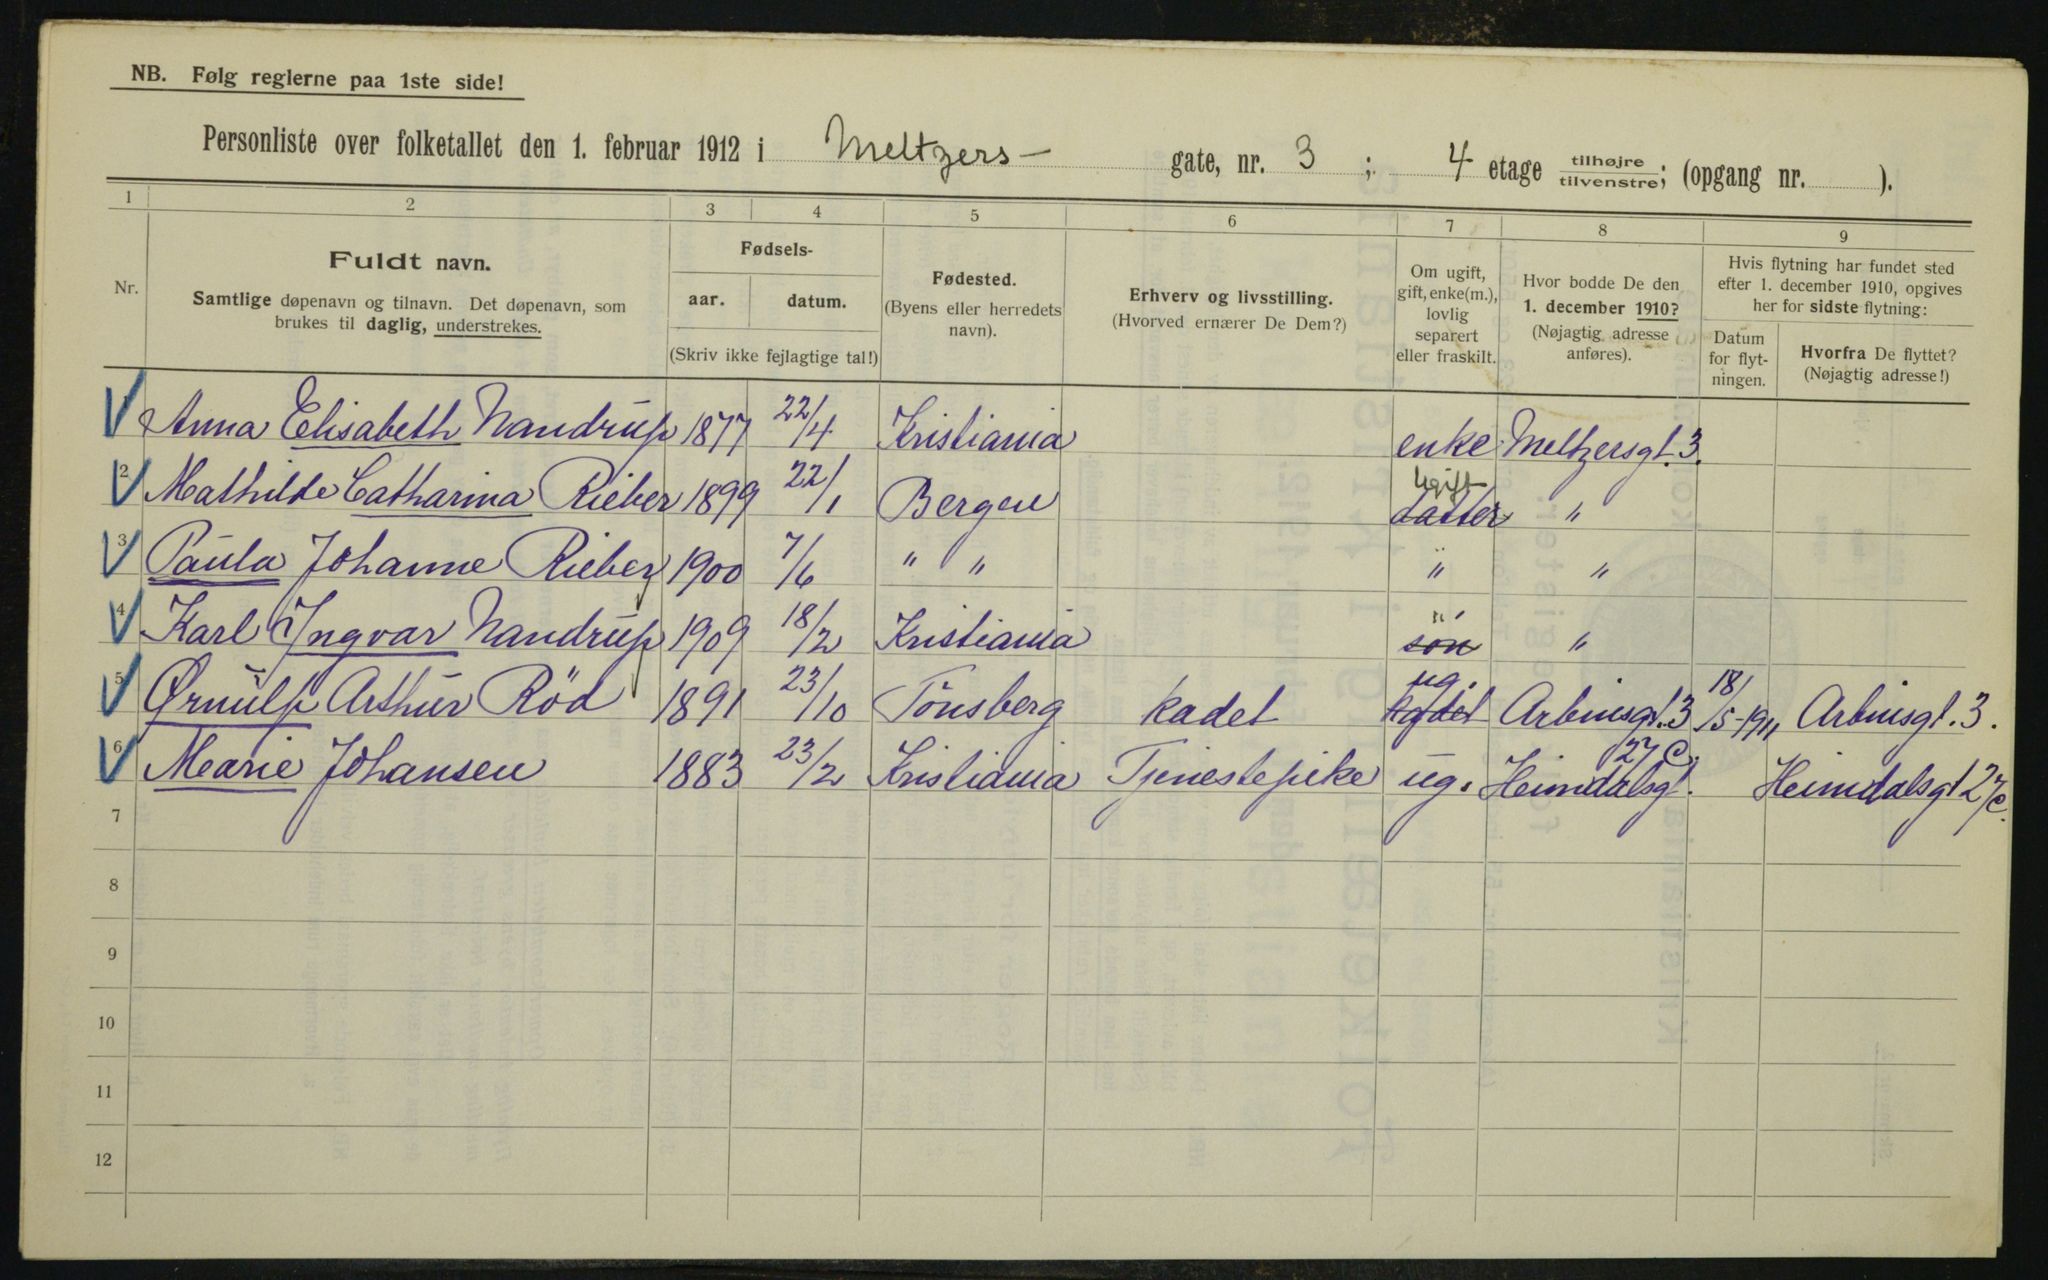 NB. Følg reglerne paa 1ste side!
Personliste over folketallet den 1. februar 1912 i Meltzers- gate, nr. 3 ; 4 etage tilhøjre/tilvenstre; (opgang nr. ).
1 2 3 4 5 6 7 8 9
Nr.
Fuldt navn.
Samtlige døpenavn og tilnavn. Det døpenavn, som
brukes til daglig, understrekes.
Fødsels-
aar. datum.
(Skriv ikke fejlagtige tal!)
Fødested.
(Byens eller herredets
navn).
Erhverv og livsstilling.
(Hvorved ernærer De Dem?)
Om ugift,
gift, enke(m.),
lovlig
separert
eller fraskilt.
Hvor bodde De den
1. december 1910?
(Nøjagtig adresse
anføres).
Hvis flytning har fundet sted
efter 1. december 1910, opgives
her for sidste flytning:
Datum
for flyt-
ningen.
Hvorfra De flyttet?
(Nøjagtig adresse!)
Anna Elisabeth Nandrup 1877 22/4 Kristiania enke Meltzersgt. 3.
2 Mathilde Catharina Rieber 1899 22/1 Bergen datter Ugift "
3 Paula Johanne Rieber 1900 7/6 " " " "
4 Karl Ingvar Nandrup 1909 18/2 Kristiania søn " "
5 Ørnulf Arthur Röd 1891 23/10 Tönsberg kadet kadet ug. Arbinsgt. 3 18/5-1911 Arbinsgt. 3.
6 Marie Johansen 1883 23/2 Kristiania Tjenestepike ug. Heimdalsgt. 27c. Heimdalsgt 27c.
7
8
9
10
11
12